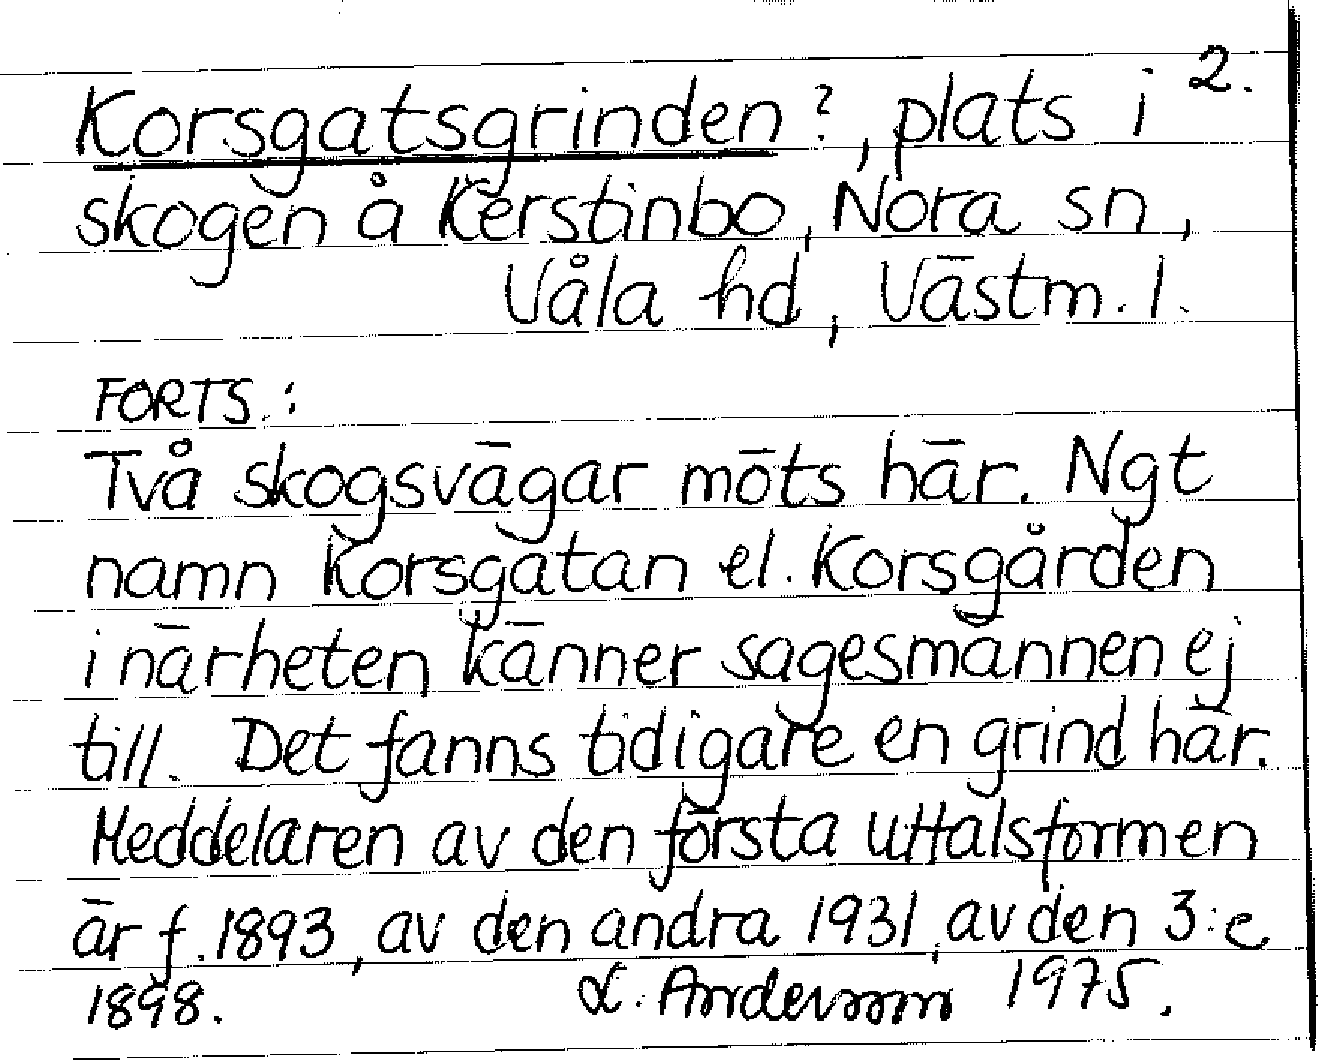 2.
Korsgatsgrinden?, plats i
skogen å Kerstinbo, Nora sn,
Våla hd, Västm. l.
FORTS.:
Två skogsvägar möts här. Ngt
namn Korsgatan el. Korsgården
i närheten känner sagesmännen ej
till. Det fanns tidigare en grind här.
Meddelaren av den första uttalsformen
är f. 1893, av den andra 1931, av den 3:e
1898. L. Andersson 1975.